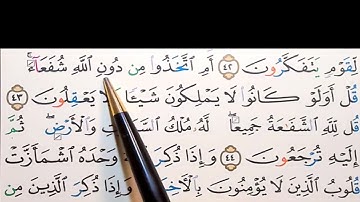 لِّقَوْمٍ يَتَفَكَّرُونَ ٤٢ أَمِ ٱتَّخَذُوا۟ مِن دُونِ ٱللَّهِ شُفَعَآءَ ۚ
قُلْ أَوَلَوْ كَانُوا۟ لَا يَمْلِكُونَ شَيْـًٔا وَلَا يَعْقِلُونَ ٤٣
قُل لِّلَّهِ ٱلشَّفَـٰعَةُ جَمِيعًا ۖ لَّهُۥ مُلْكُ ٱلسَّمَـٰوَٰتِ وَٱلْأَرْضِ ۖ ثُمَّ
إِلَيْهِ تُرْجَعُونَ ٤٤ وَإِذَا ذُكِرَ ٱللَّهُ وَحْدَهُ ٱشْمَأَزَّتْ
قُلُوبُ ٱلَّذِينَ لَا يُؤْمِنُونَ بِٱلْـَٔاخِرَةِ ۖ وَإِذَا ذُكِرَ ٱلَّذِينَ مِن